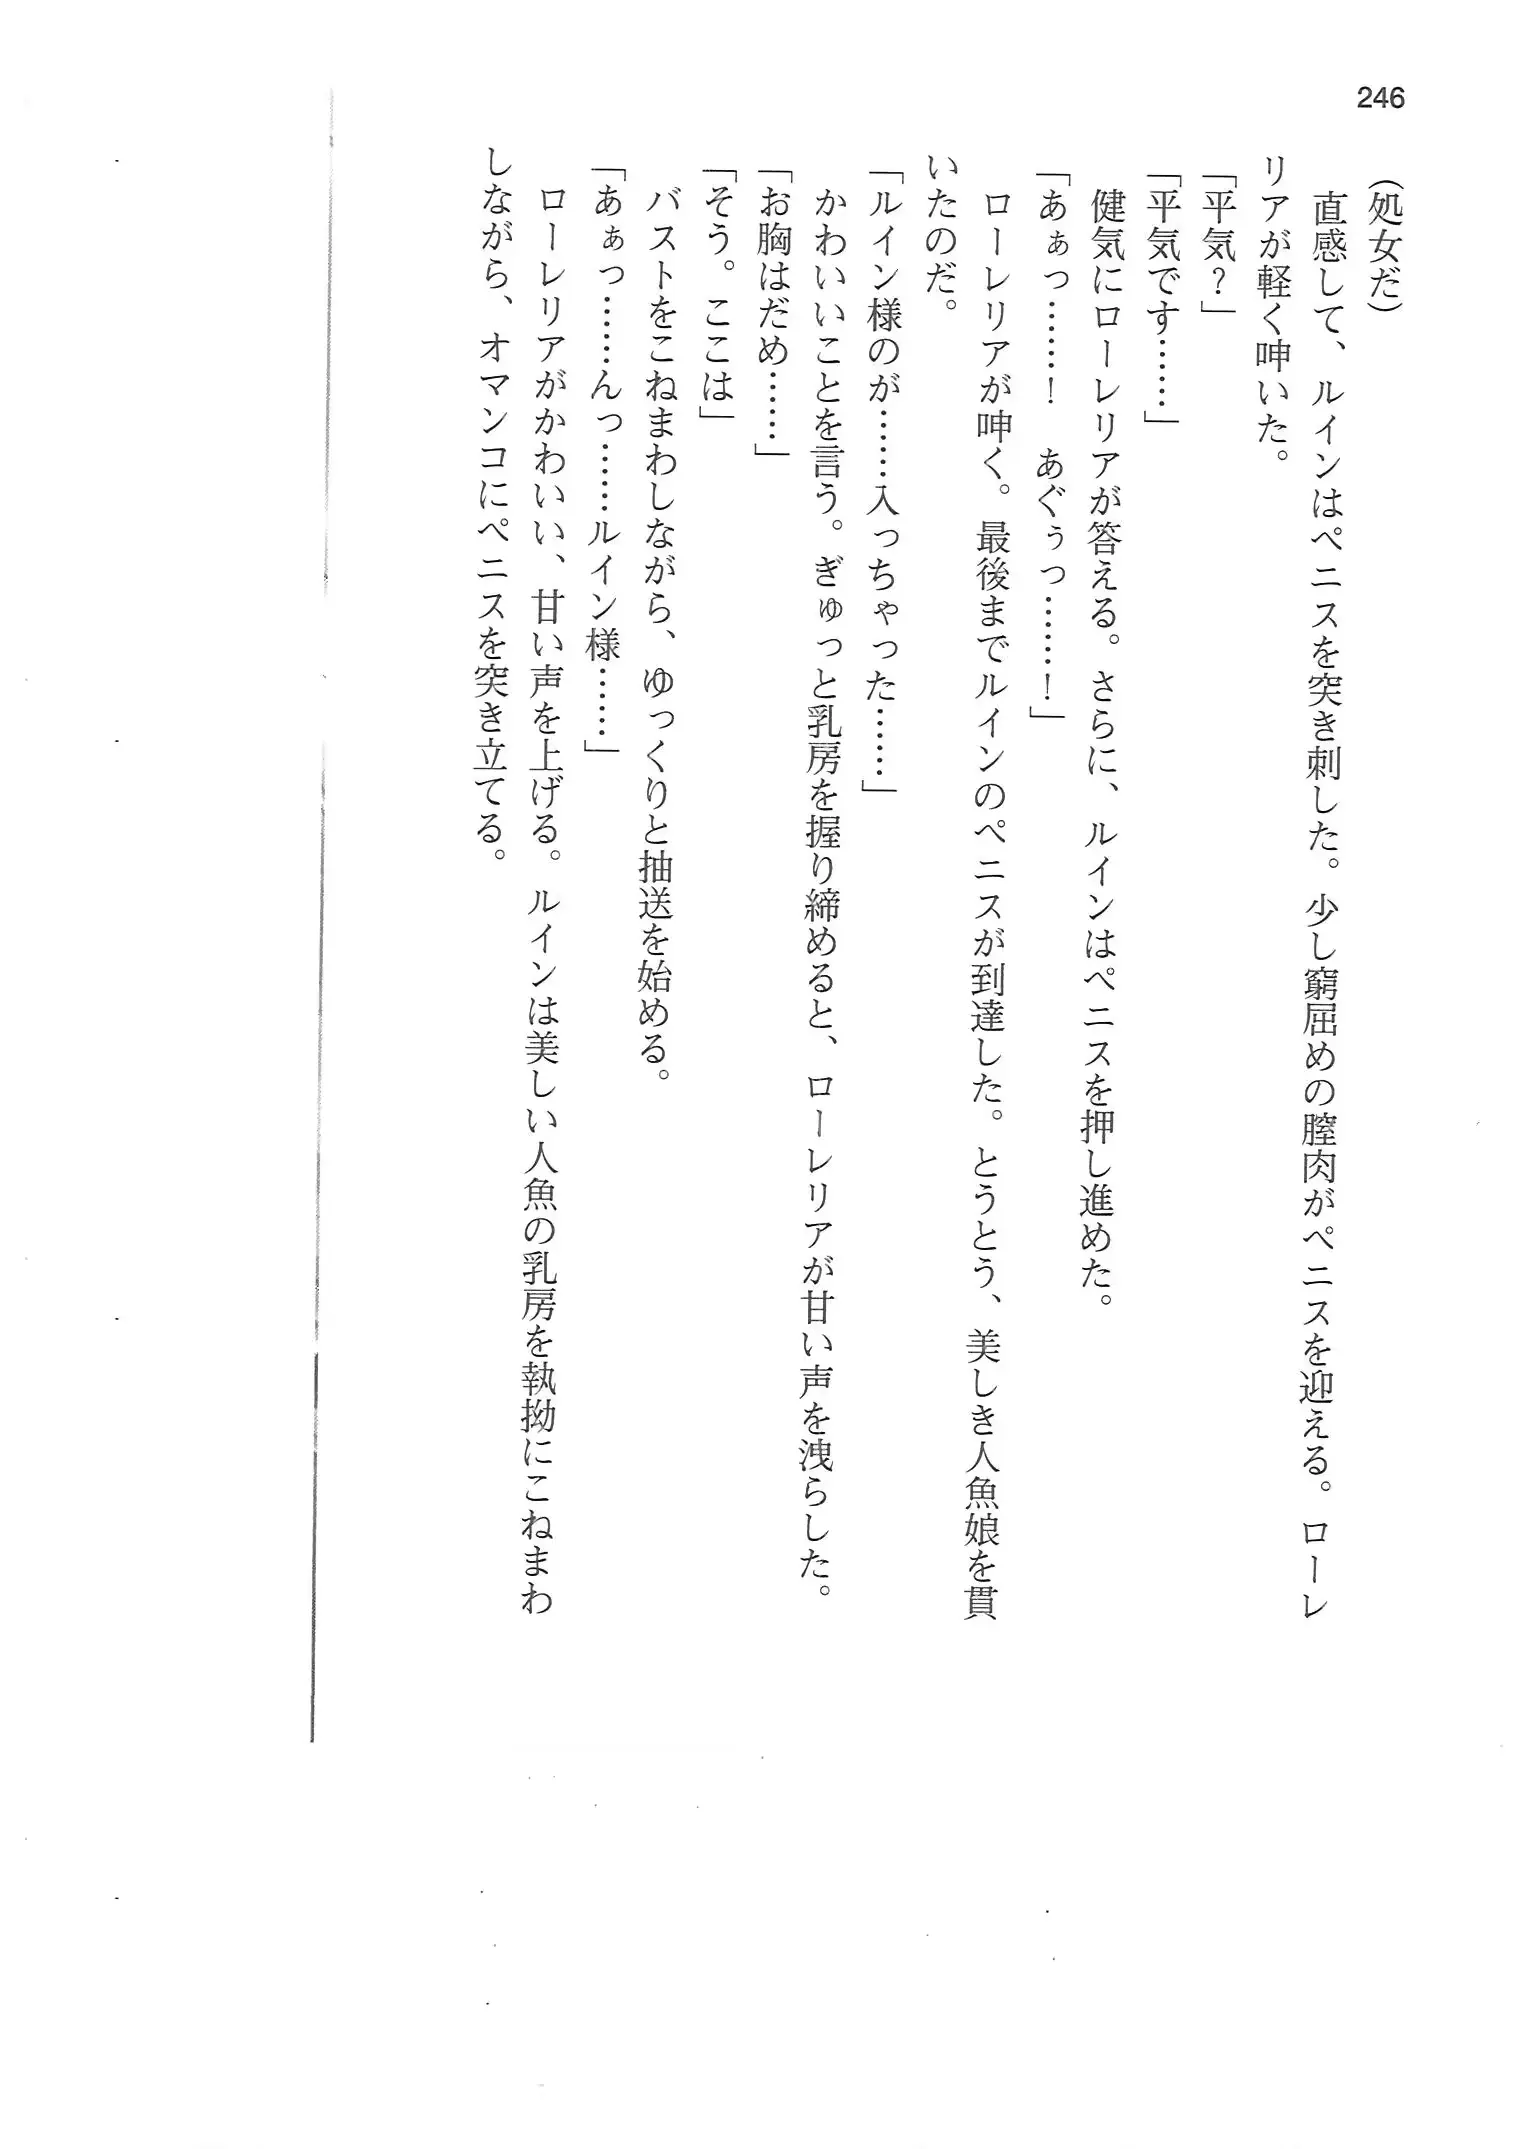 246
（処女だ）
　直感して、ルインはペニスを突き刺した。少し窮屈めの膣肉がペニスを迎える。ローレ
リアが軽く呻いた。
「平気？」
「平気です……」
　健気にローレリアが答える。さらに、ルインはペニスを押し進めた。
「あぁっ……！　あぐぅっ……！」
　ローレリアが呻く。最後までルインのペニスが到達した。とうとう、美しき人魚娘を貫
いたのだ。
「ルイン様のが……入っちゃった……」
　かわいいことを言う。ぎゅっと乳房を握り締めると、ローレリアが甘い声を洩らした。
「お胸はだめ……」
「そう。ここは」
　バストをこねまわしながら、ゆっくりと抽送を始める。
「あぁっ……んっ……ルイン様……」
　ローレリアがかわいい、甘い声を上げる。ルインは美しい人魚の乳房を執拗にこねまわ
しながら、オマンコにペニスを突き立てる。